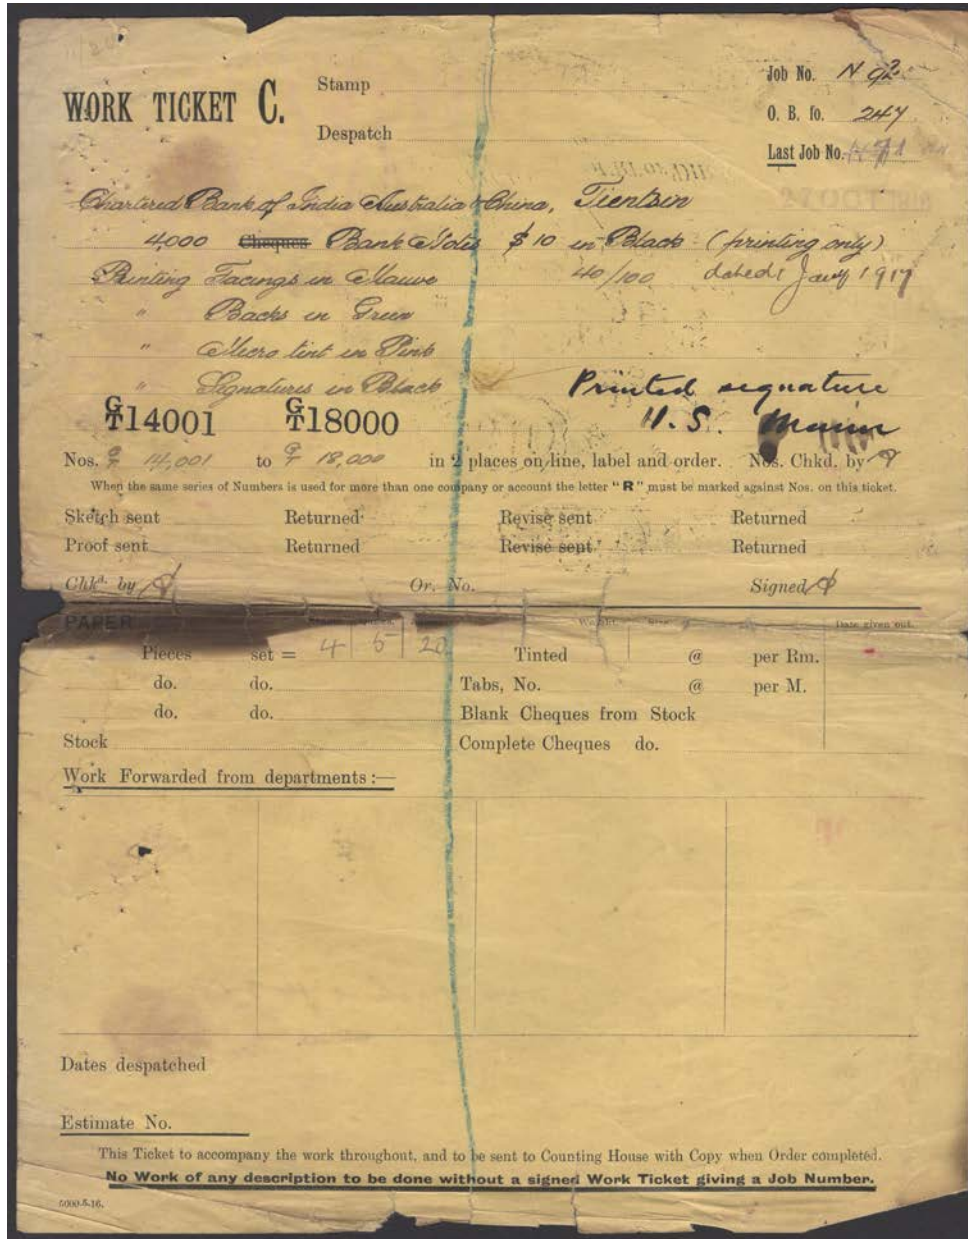 WORK TICKET C.
Stamp
Despatch
Job No. N 92
O. B. fo. 247
Last Job No.
Chartered Bank of India Australia & China, Tientsin
4,000 Cheques Bank Notes $10 in Black (printing only)
Printing Facings in Mauve 40/100 dated 1 Jany 1917
" Backs in Green
" Micro tint in Pink
" Signatures in Black Printed signature
G/T14001 G/T18000 H. S.
Nos. G/T 14,001 to G/T 18,000 in 2 places on line, label and order. Nos. Chkd. by
When the same series of Numbers is used for more than one company or account the letter "R" must be marked against Nos. on this ticket.
Sketch sent Returned Revise sent Returned
Proof sent Returned Revise sent Returned
Chkd. by Or. No. Signed
PAPER Weight Date given out.
Pieces set = 4 5 20 Tinted @ per Rm.
do. do. Tabs, No. @ per M.
do. do. Blank Cheques from Stock
Stock Complete Cheques do.
Work Forwarded from departments :—
Dates despatched
Estimate No.
This Ticket to accompany the work throughout, and to be sent to Counting House with Copy when Order completed.
No Work of any description to be done without a signed Work Ticket giving a Job Number.
5000-5-16.